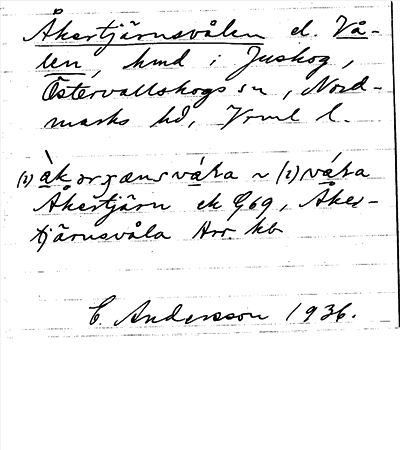 Åkertjärnsvålen el. Vå-
len, hmd i Juskog,
Östervallskogs sn, Nord-
marks hd, Vrml l.
(2)
Åkertjärn ek G69, Åker-
tjärnsvåla Arr. kb
C. Andersson 1936.